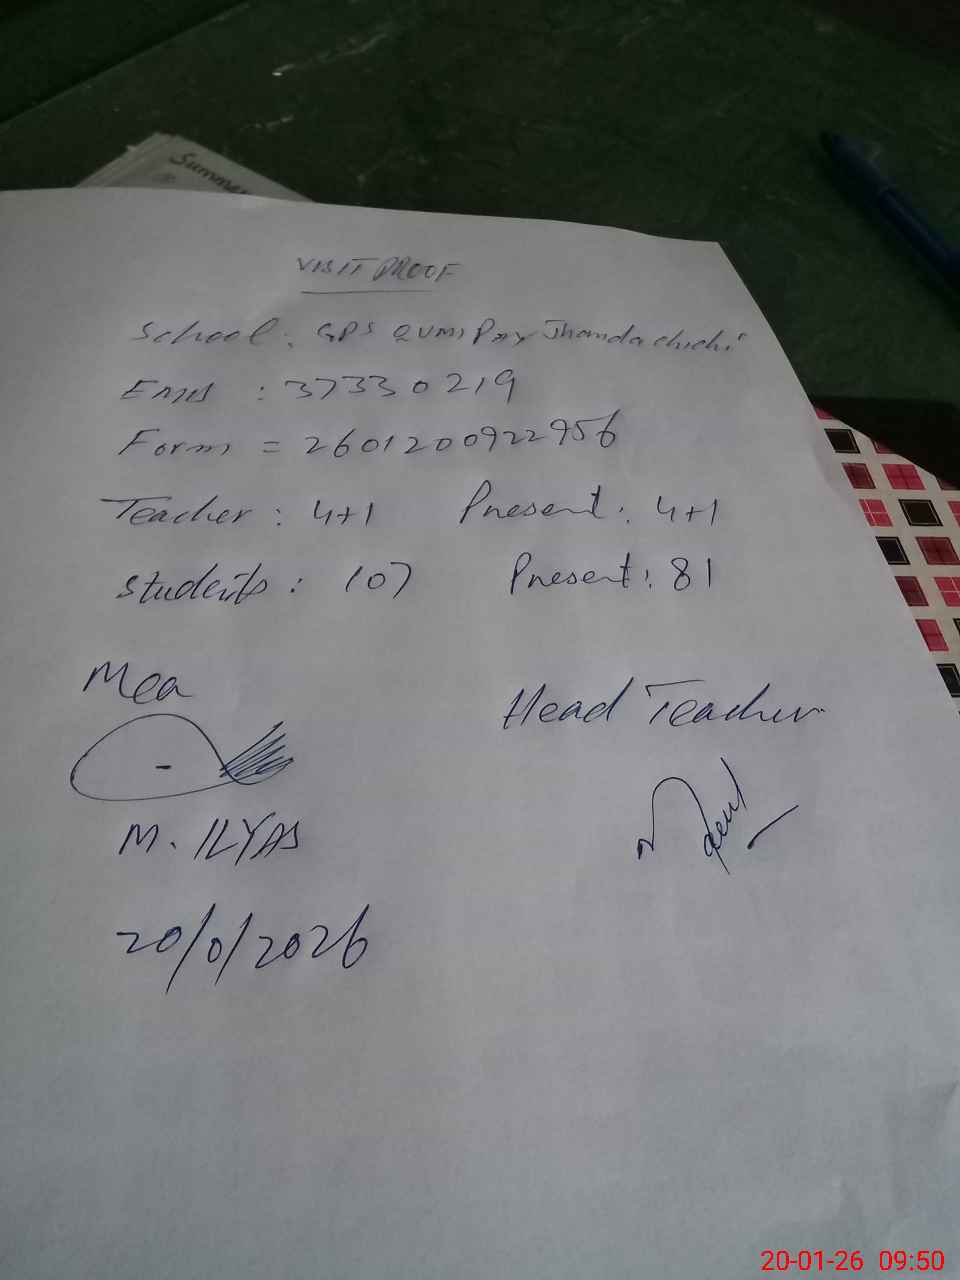 Summa
VISIT PROOF
School: GPS QUMI Pxy Jhanda chichi
EMIS : 37330219
Form = 2601200922956
Teacher: 4+1 Present: 4+1
Students: 107 Present: 81
Mea
Head Teacher
M. ILYAS
20/0/2026
20-01-26 09:50